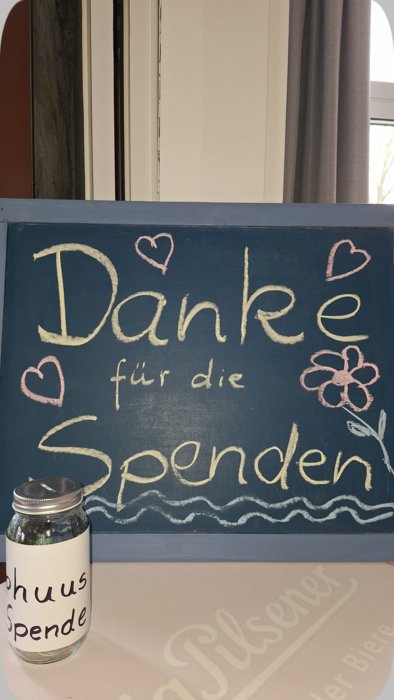 Danke
für die
Spenden
phuus
Spende
Pilsener
er Biere